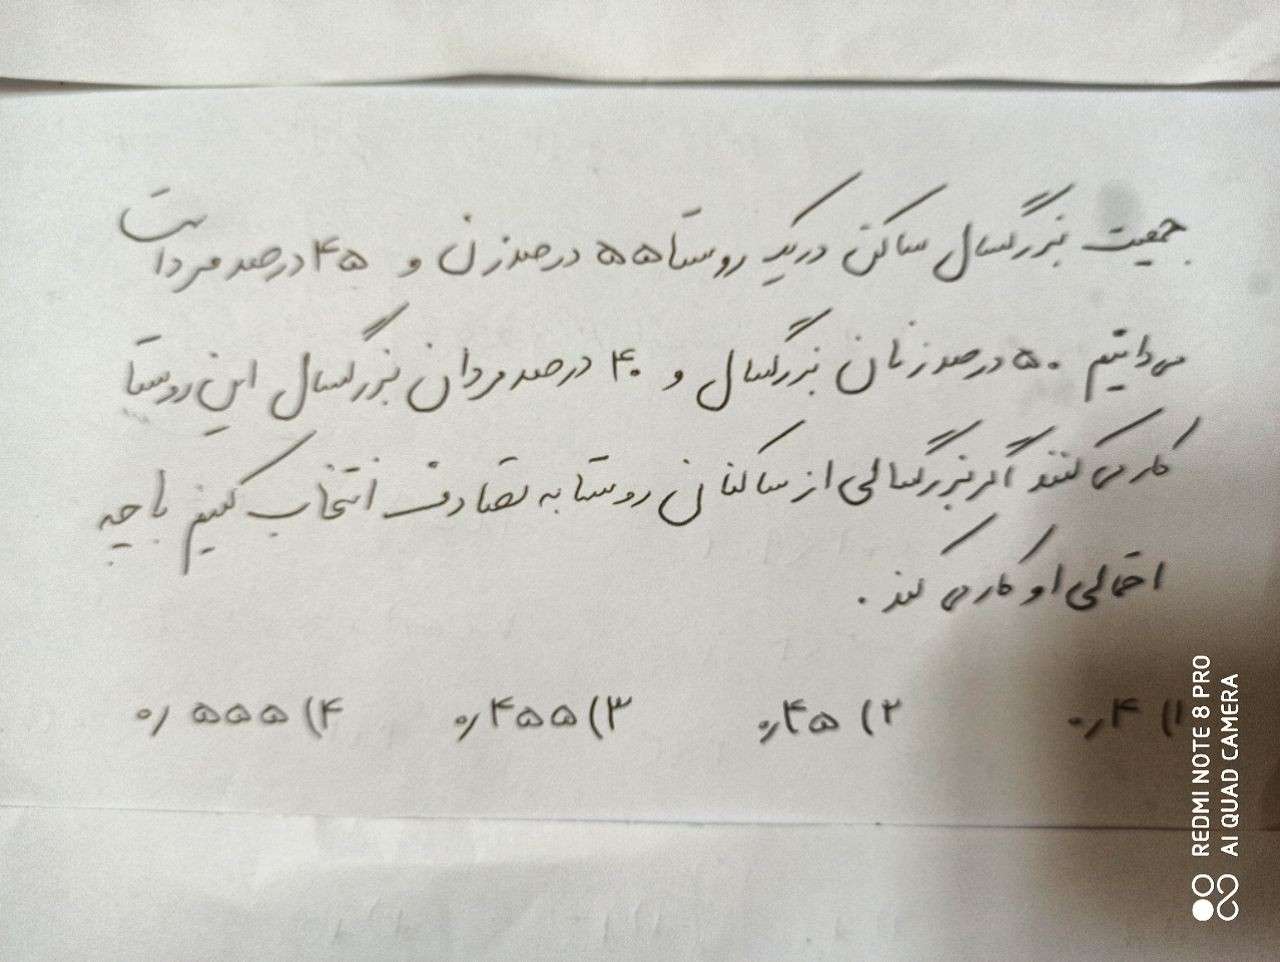 جمعیت بزرگسال ساکن در یک روستا ۵۵ درصد زن و ۴۵ درصد مرد است
می‌دانیم ۵۰ درصد زنان بزرگسال و ۴۰ درصد مردان بزرگسال این روستا
کار می‌کنند اگر بزرگسالی از ساکنان روستا به تصادف انتخاب کنیم با چه
احتمالی او کار می‌کند.
۱) ۰٫۴ ۲) ۰٫۴۵ ۳) ۰٫۴۵۵ ۴) ۰٫۵۵۵
REDMI NOTE 8 PRO
AI QUAD CAMERA